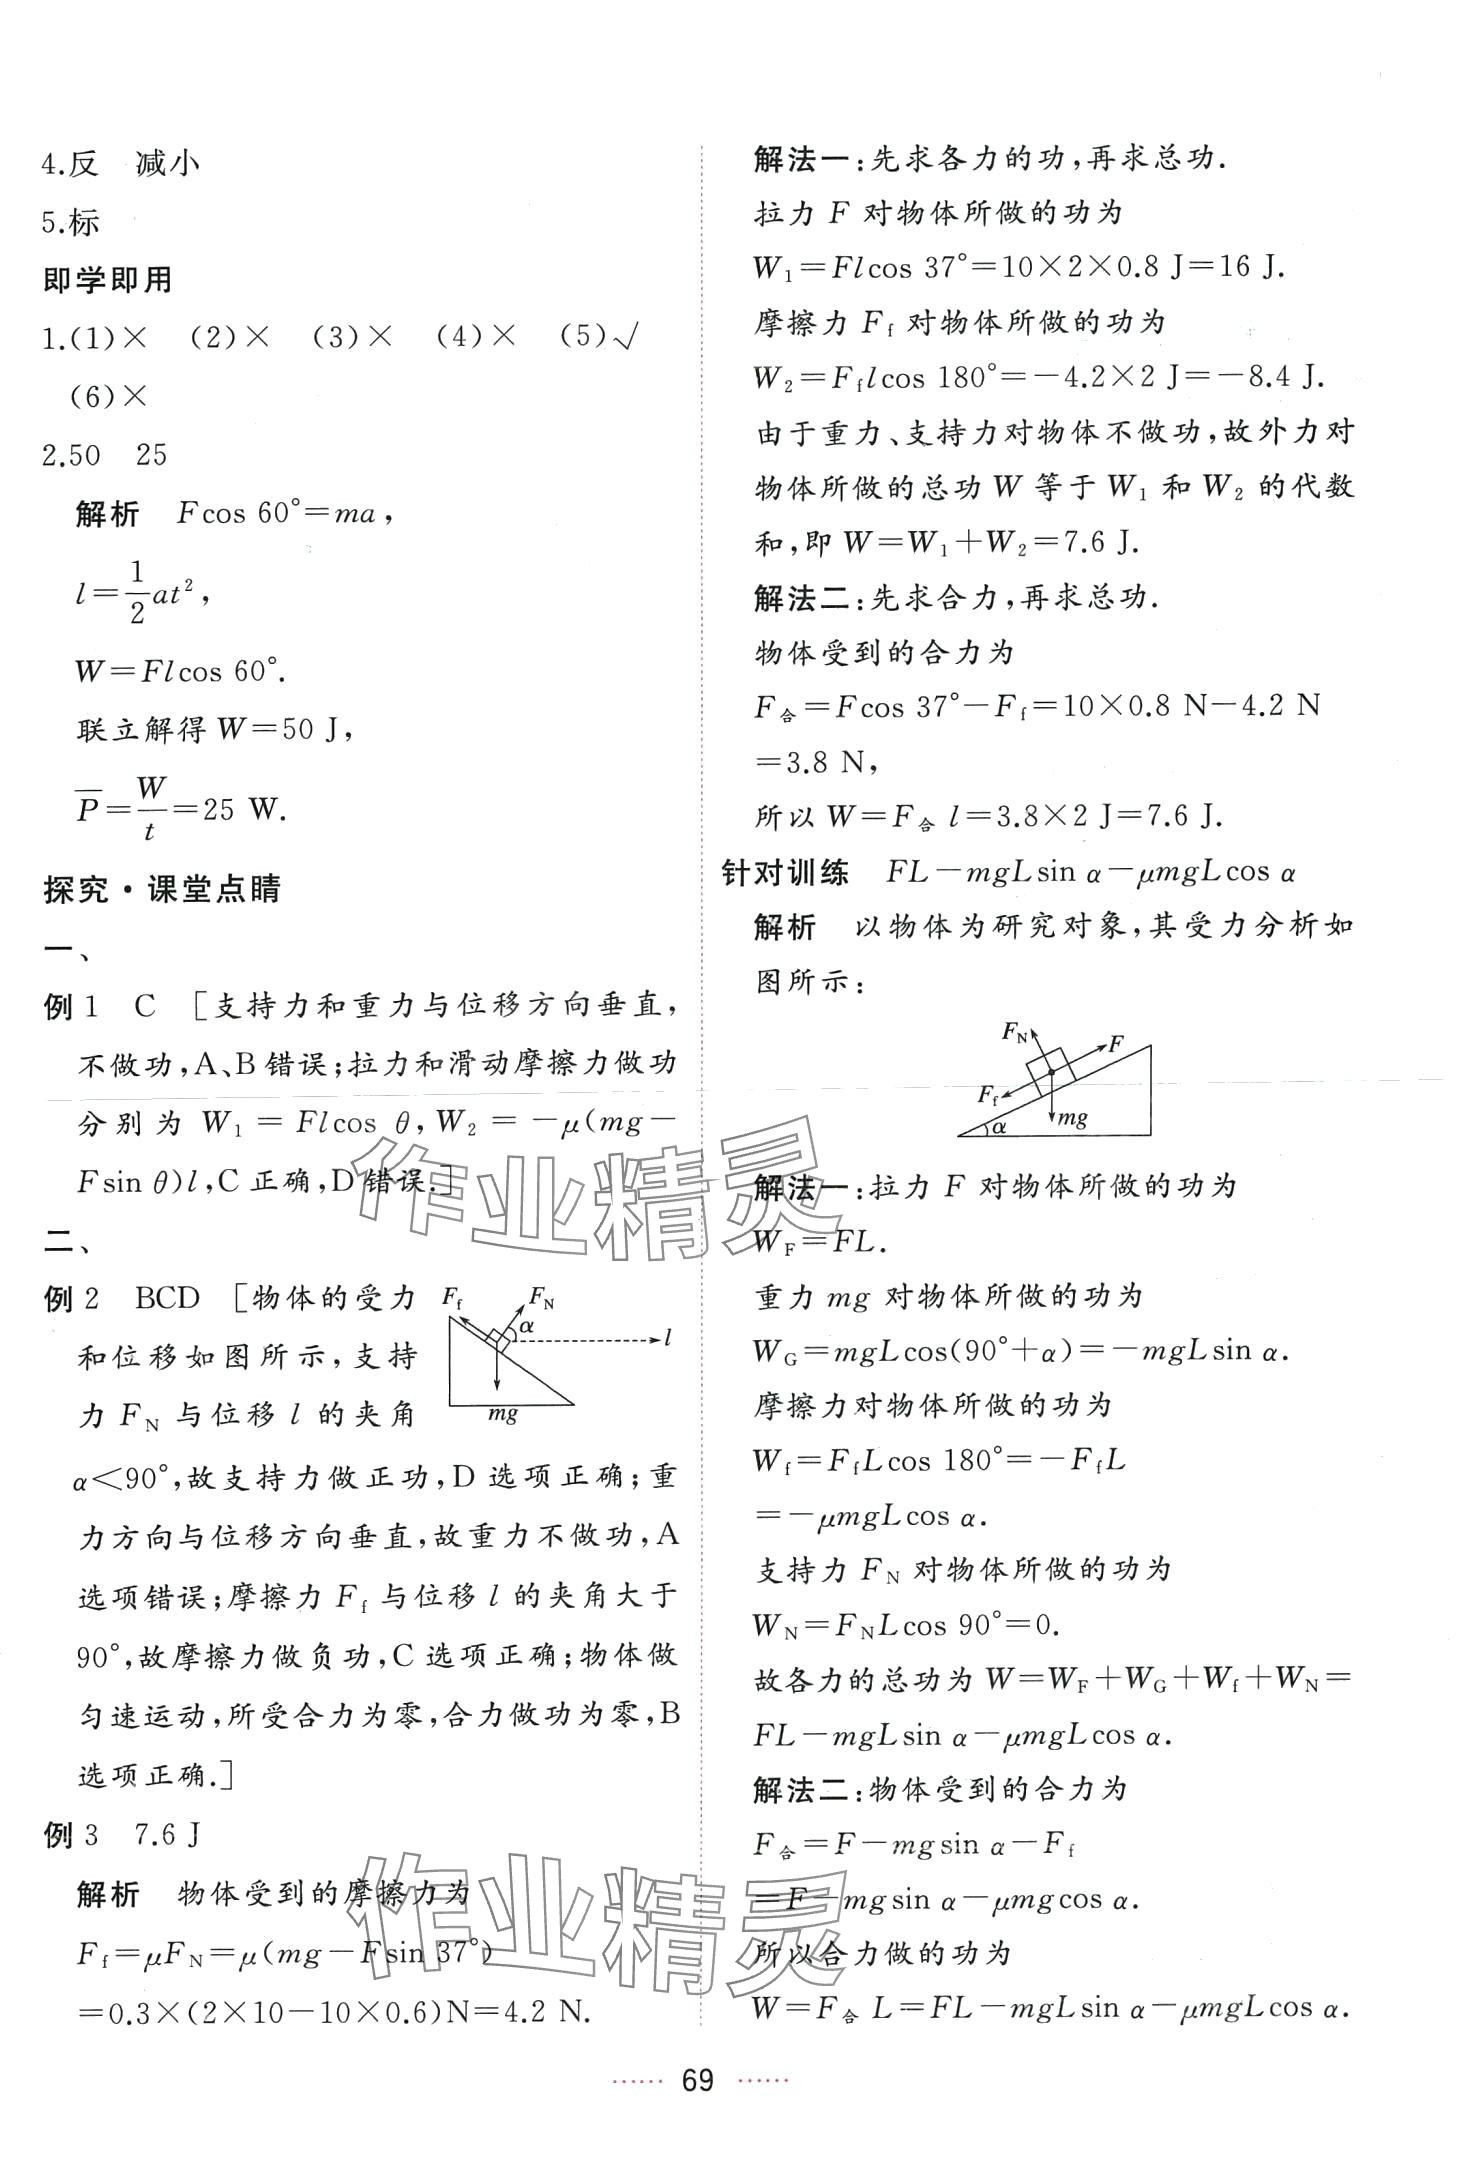 4.反　减小
5.标
即学即用
1.(1)×　(2)×　(3)×　(4)×　(5)√
(6)×
2.50　25
解析　Fcos 60°=ma,
l=1/2at²,
W=Flcos 60°.
联立解得W=50 J,
P̅=W/t=25 W.
探究·课堂点睛
一、
例1　C　[支持力和重力与位移方向垂直,
不做功,A、B错误;拉力和滑动摩擦力做功
分别为 W₁=Flcos θ,W₂=-μ(mg-
Fsin θ)l,C正确,D错误.]
二、
例2　BCD　[物体的受力
和位移如图所示,支持
力 F_N 与位移 l 的夹角
F_f
F_N
α
l
mg
α<90°,故支持力做正功,D选项正确;重
力方向与位移方向垂直,故重力不做功,A
选项错误;摩擦力 F_f 与位移 l 的夹角大于
90°,故摩擦力做负功,C选项正确;物体做
匀速运动,所受合力为零,合力做功为零,B
选项正确.]
例3　7.6 J
解析　物体受到的摩擦力为
F_f=μF_N=μ(mg-Fsin 37°)
=0.3×(2×10-10×0.6)N=4.2 N.
解法一:先求各力的功,再求总功.
拉力 F 对物体所做的功为
W₁=Flcos 37°=10×2×0.8 J=16 J.
摩擦力 F_f 对物体所做的功为
W₂=F_flcos 180°=-4.2×2 J=-8.4 J.
由于重力、支持力对物体不做功,故外力对
物体所做的总功 W 等于 W₁ 和 W₂ 的代数
和,即 W=W₁+W₂=7.6 J.
解法二:先求合力,再求总功.
物体受到的合力为
F_合=Fcos 37°-F_f=10×0.8 N-4.2 N
=3.8 N,
所以 W=F_合 l=3.8×2 J=7.6 J.
针对训练　FL-mgLsin α-μmgLcos α
解析　以物体为研究对象,其受力分析如
图所示:
F_N
F
F_f
α
mg
解法一:拉力 F 对物体所做的功为
W_F=FL.
重力 mg 对物体所做的功为
W_G=mgLcos(90°+α)=-mgLsin α.
摩擦力对物体所做的功为
W_f=F_fLcos 180°=-F_fL
=-μmgLcos α.
支持力 F_N 对物体所做的功为
W_N=F_NLcos 90°=0.
故各力的总功为 W=W_F+W_G+W_f+W_N=
FL-mgLsin α-μmgLcos α.
解法二:物体受到的合力为
F_合=F-mgsin α-F_f
=F-mgsin α-μmgcos α.
所以合力做的功为
W=F_合 L=FL-mgLsin α-μmgLcos α.
作业精灵
作业精灵
······ 69 ······